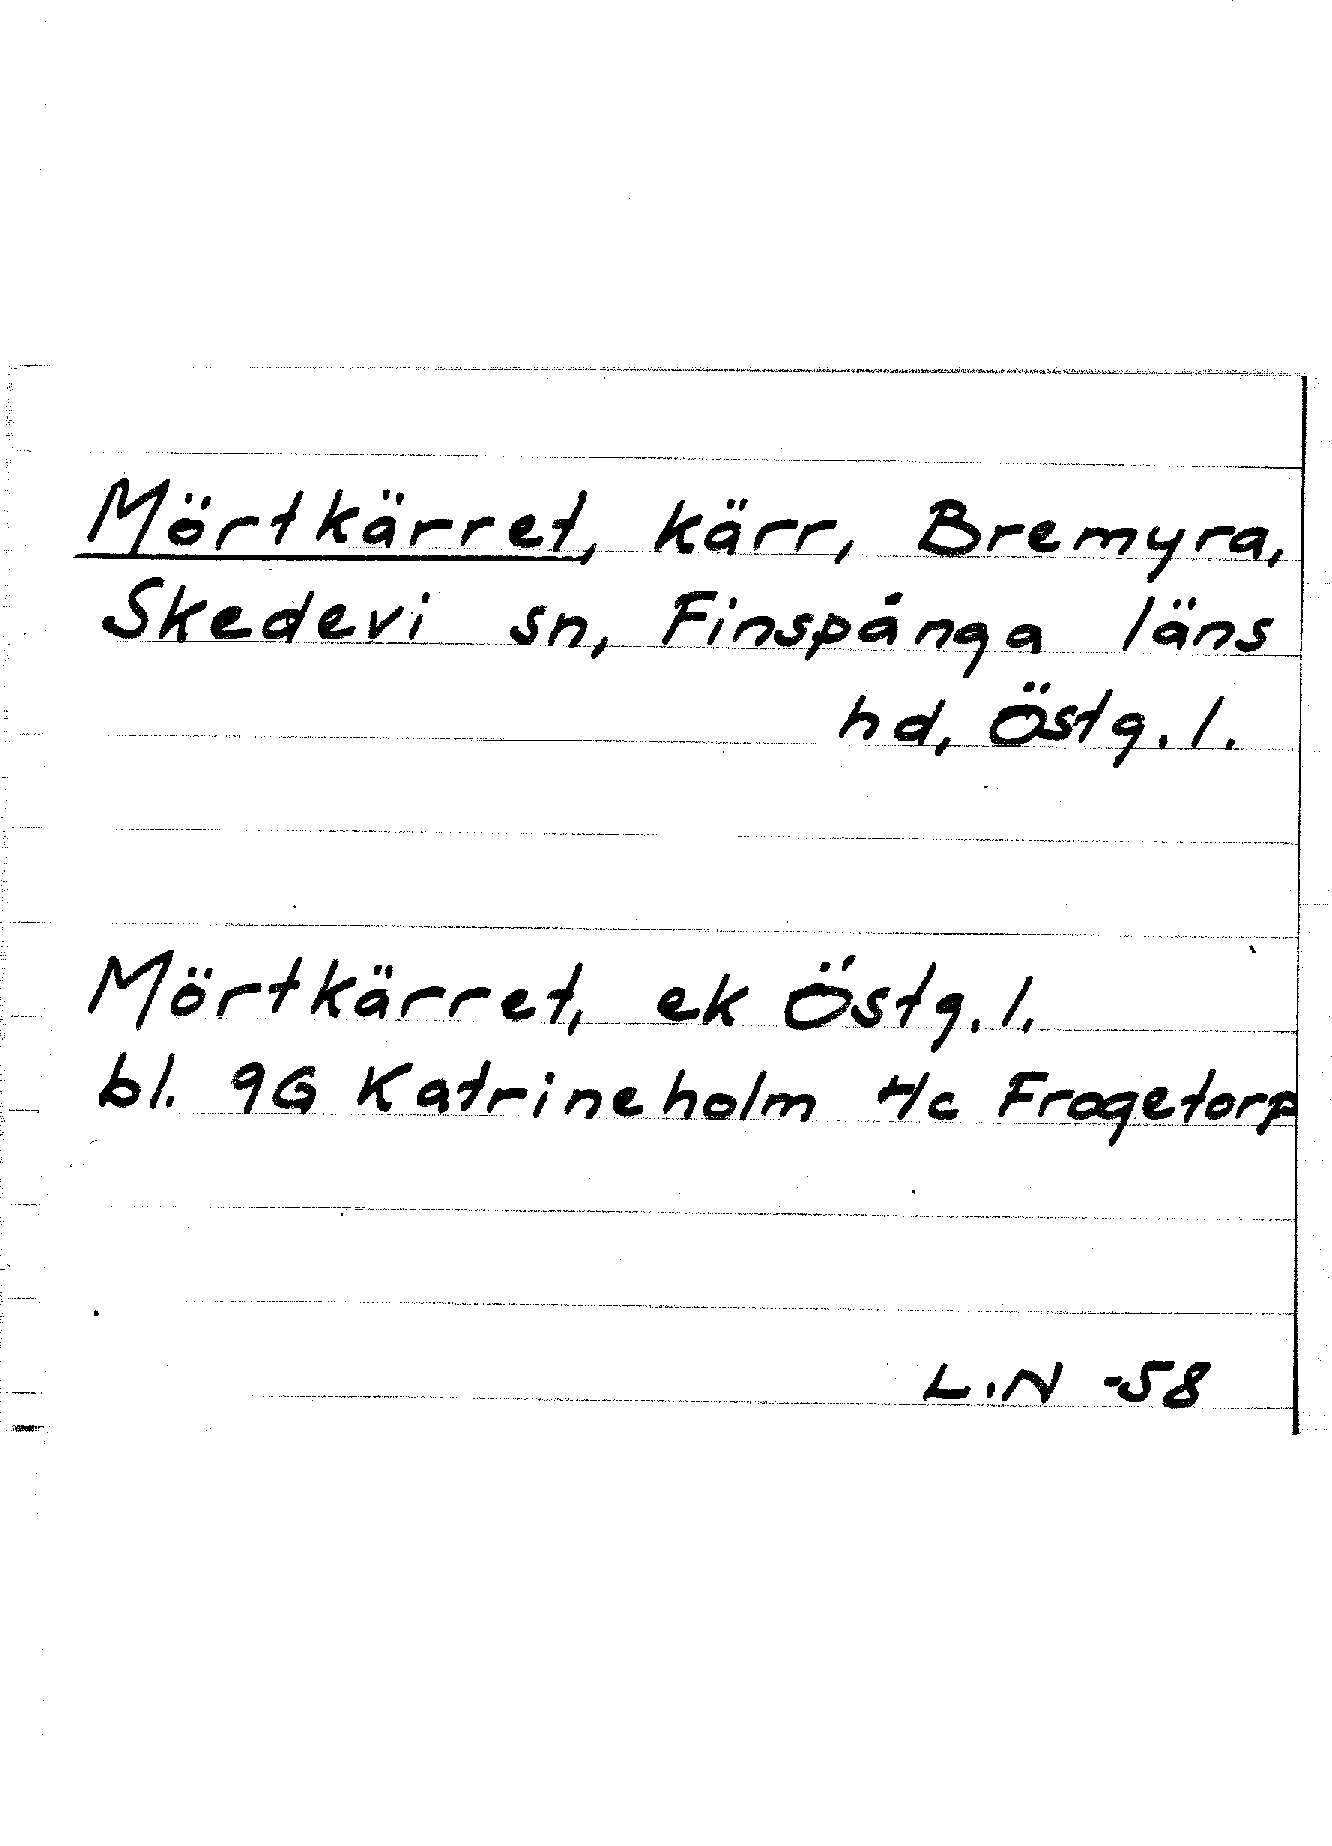 Mörtkärret, kärr, Bremyra,
Skedevi sn, Finspånga läns
hd, Östg. l.
Mörtkärret, ek Östg. l.
bl. 9G Katrineholm 4c Frogetorp
L.N -58